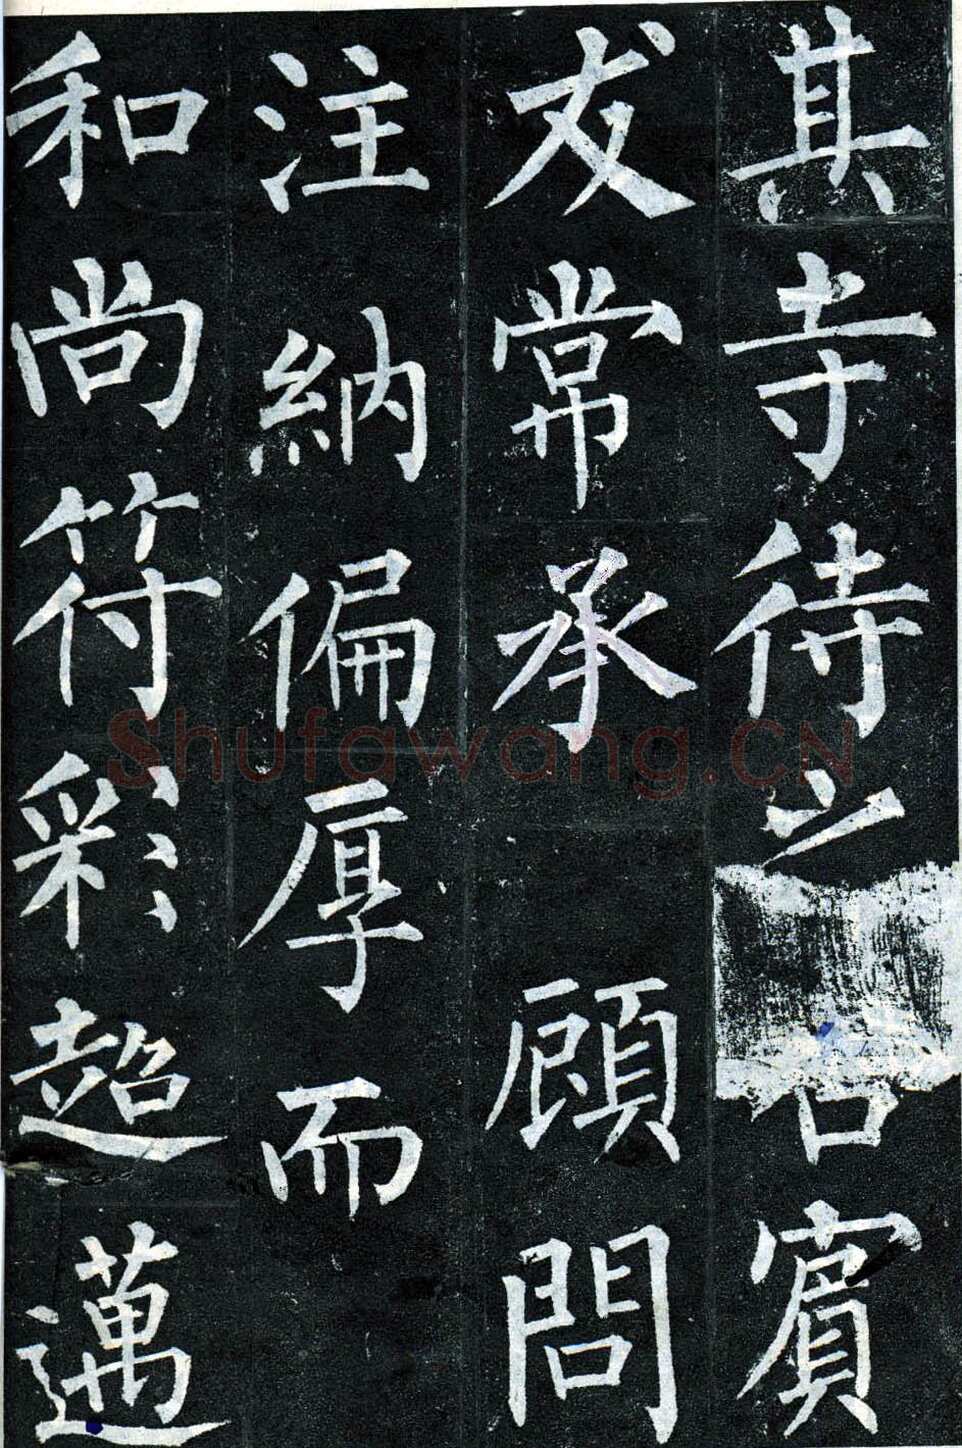 其寺待之若賓
友常承 顧問
注納偏厚而
和尚符彩超邁
Shufawang.CN